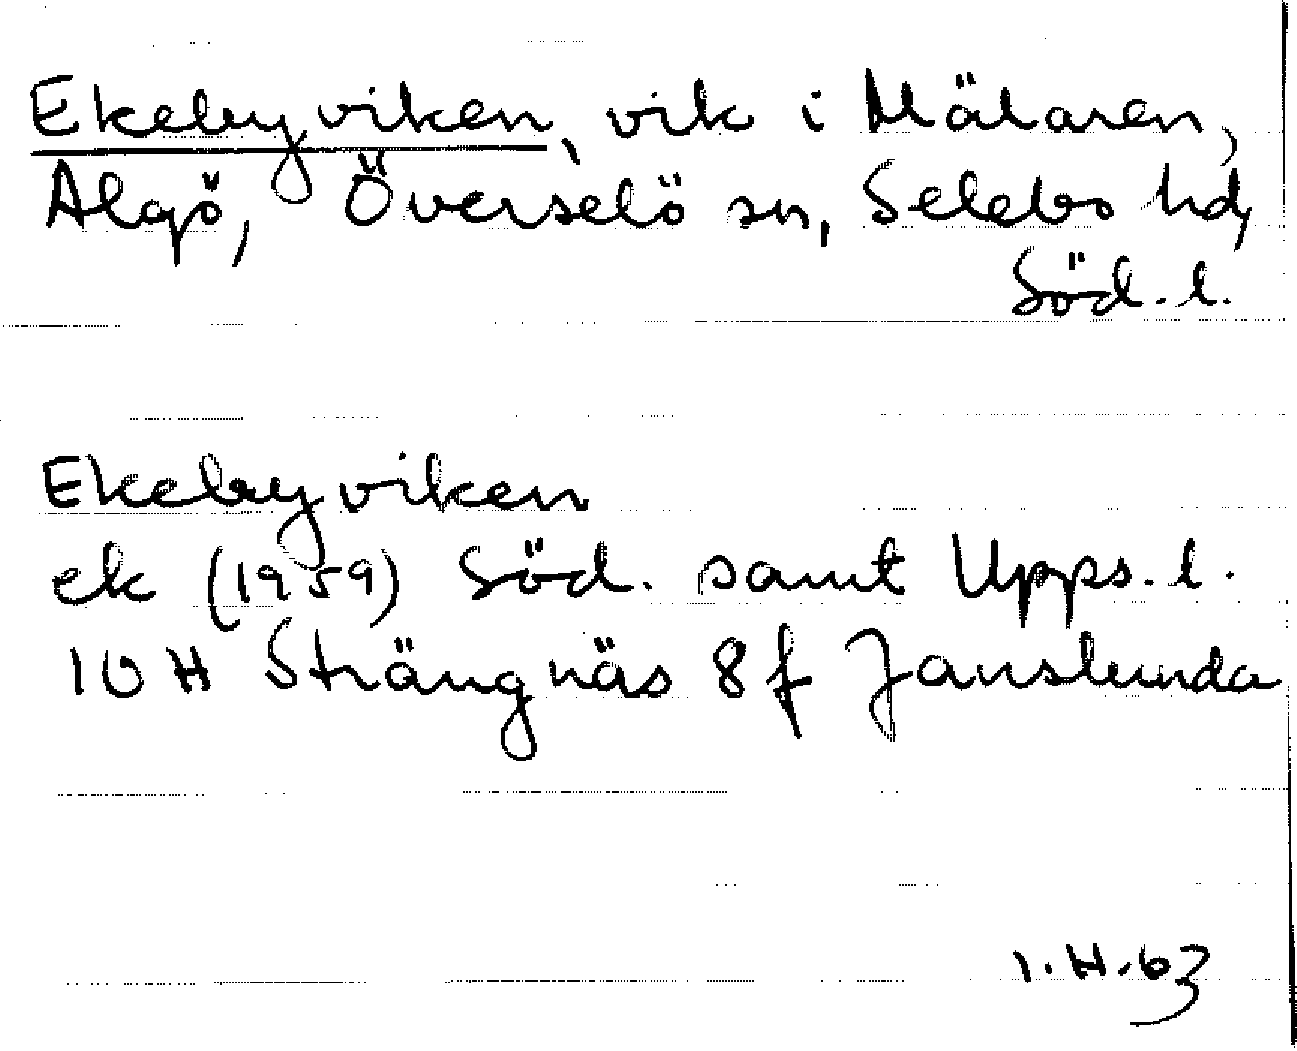 Ekebyviken, vik i Mälaren,
Algö, Överselö sn, Selebo hd,
Söd. l.
Ekebyviken
ek (1959) Söd. samt Upps. l.
10 H Strängnäs 8 f Janslunda
I.H.63